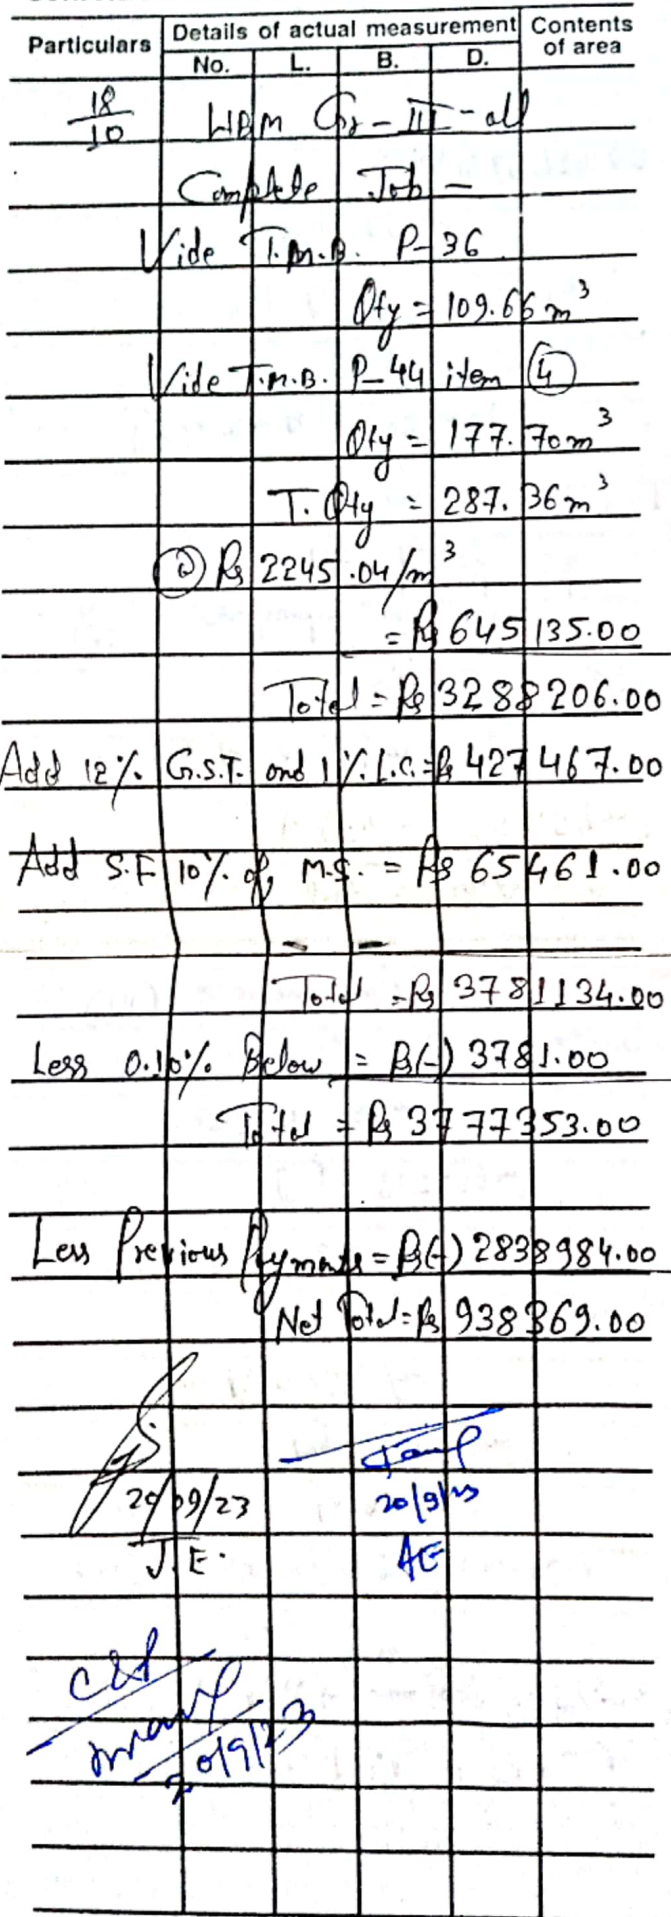 Particulars Details of actual measurement Contents of area
No. L. B. D.
18/10 WBM Gr-III-all
Complete Job -
Vide T.M.B. P-36
Qty = 109.66 m³
Vide T.M.B. P-44 item 4
Qty = 177.70 m³
T. Qty = 287.36 m³
@ Rs 2245.04/m³
= Rs 645135.00
Total = Rs 3288206.00
Add 12% G.S.T. and 1% L.C. = Rs 427467.00
Add S.F 10% of M.S. = Rs 65461.00
Total = Rs 3781134.00
Less 0.10% Below = Rs (-) 3781.00
Total = Rs 3777353.00
Less Previous Payments = Rs (-) 2838984.00
Net Total = Rs 938369.00
20/09/23 20/9/23
J.E. AE
20/9/23